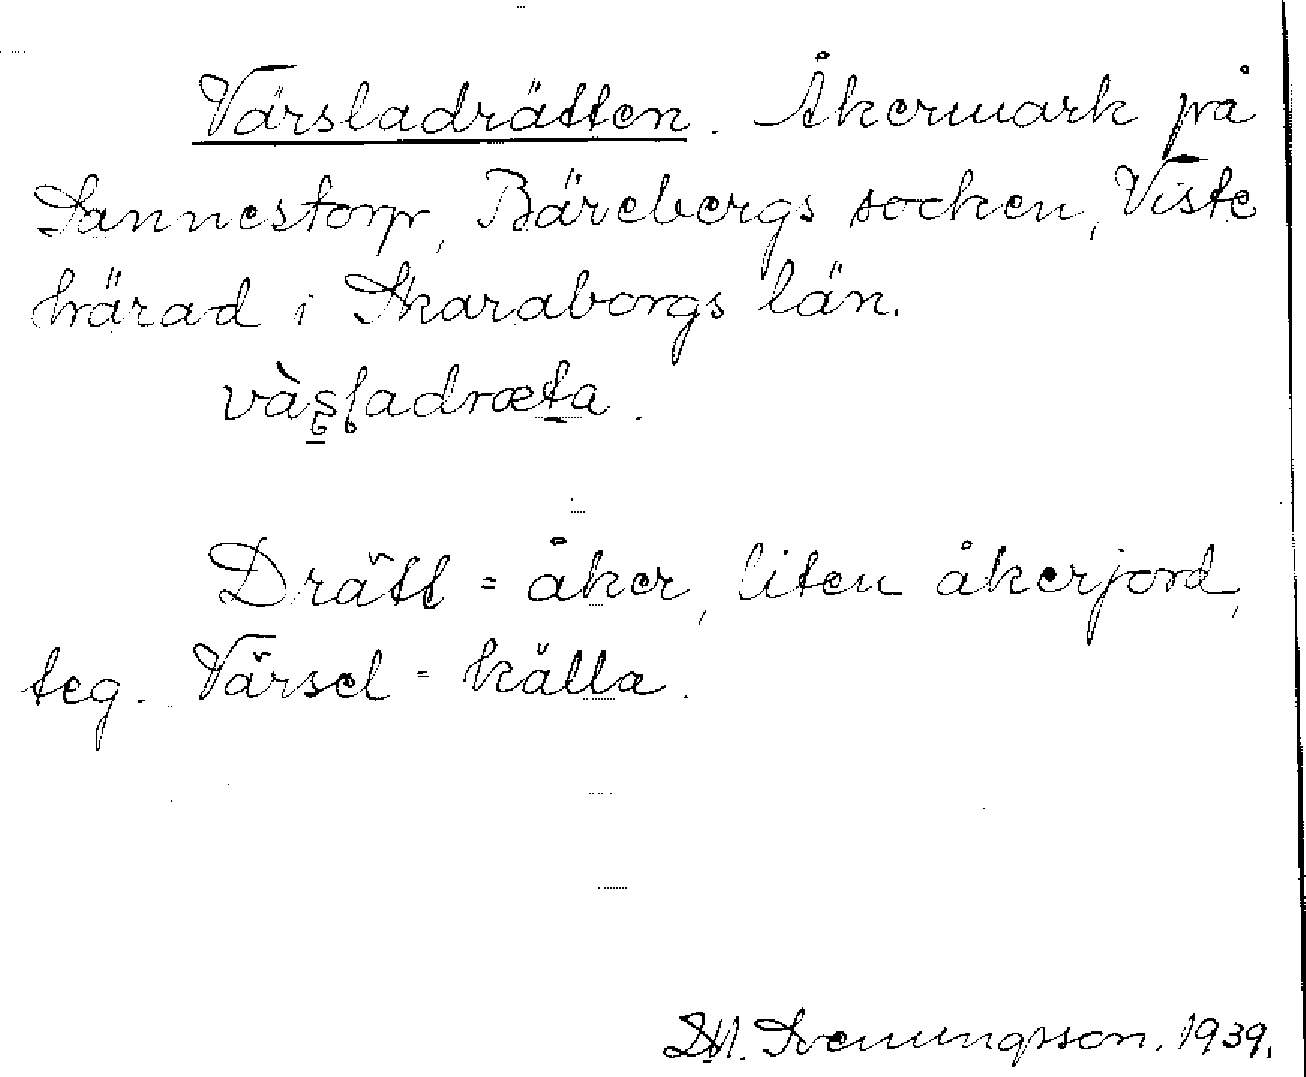 Värsladrätten. Åkermark på
Sannestorp, Bärebergs socken, Viste
härad i Skaraborgs län.
Drätt = åker, liten åkerjord,
teg. Värsel = källa.
Svenungsson. 1939.